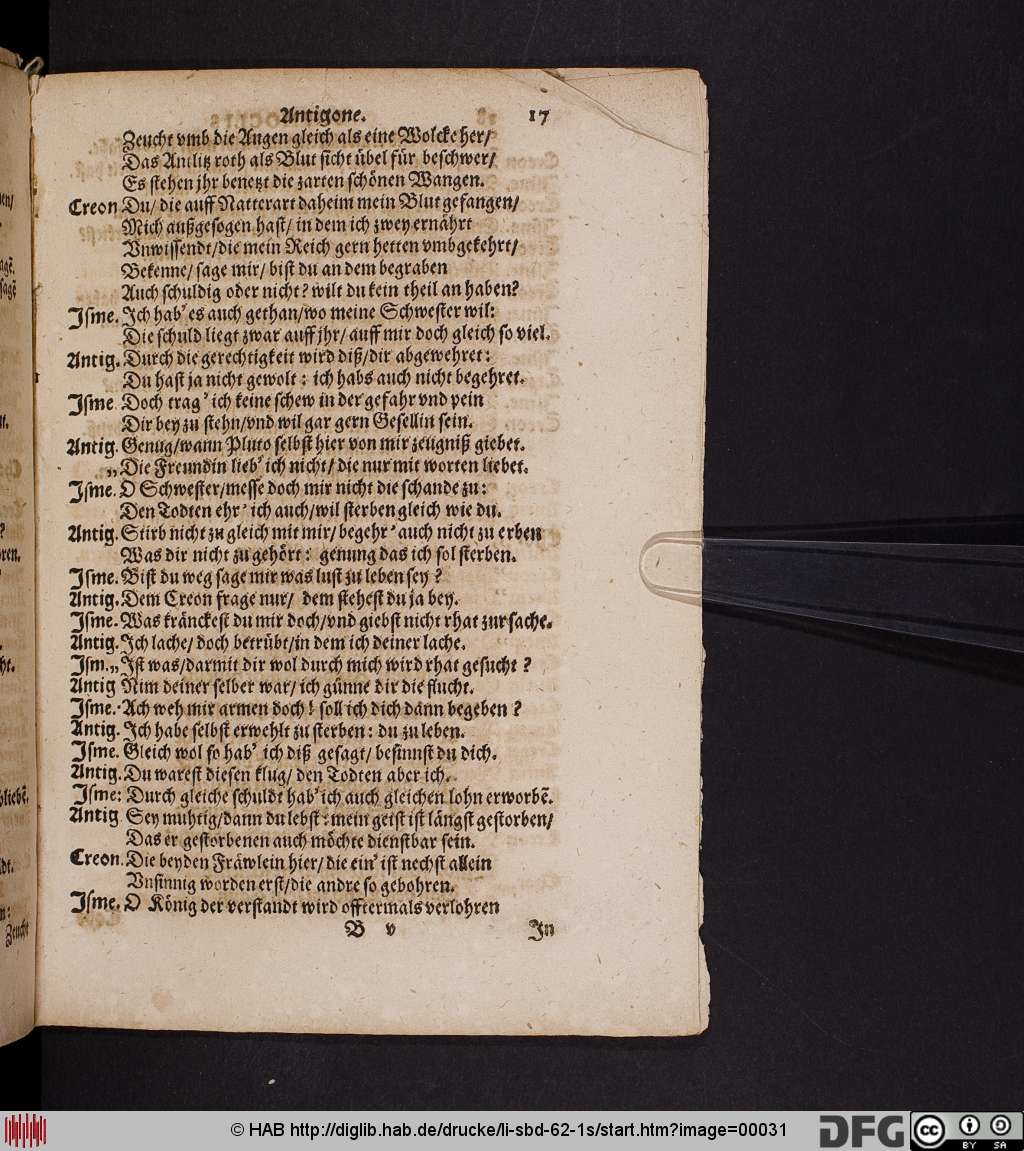 Antigone. 17
Zeucht vmb die Augen gleich als eine Wolcke her/
Das Antlitz roth als Blut sicht übel für beschwer/
Es stehen jhr benetzt die zarten schönen Wangen.
Creon Du/ die auff Natterart daheim mein Blut gefangen/
Mich außgesogen hast/ in dem ich zwey ernährt
Vnwissendt/die mein Reich gern hetten vmbgekehrt/
Bekenne/ sage mir/ bist du an dem begraben
Auch schuldig oder nicht? wilt du kein theil an haben?
Jsme. Jch hab' es auch gethan/wo meine Schwester wil:
Die schuld liegt zwar auff jhr/ auff mir doch gleich so viel.
Antig. Durch die gerechtigkeit wird diß/dir abgewehret:
Du hast ja nicht gewolt: ich habs auch nicht begehret.
Jsme Doch trag' ich keine schew in der gefahr vnd pein
Dir bey zu stehn/vnd wil gar gern Gesellin sein.
Antig. Genug/wann Pluto selbst hier von mir zeugniß giebet.
„Die Freundin lieb' ich nicht/ die nur mit worten liebet.
Jsme. O Schwester/messe doch mir nicht die schande zu:
Den Todten ehr' ich auch/wil sterben gleich wie du.
Antig. Stirb nicht zu gleich mit mir/ begehr' auch nicht zu erben
Was dir nicht zu gehört: genung das ich sol sterben.
Jsme. Bist du weg sage mir was lust zu leben sey?
Antig. Dem Creon frage nur/ dem stehest du ja bey.
Jsme. Was kränckest du mir doch/vnd giebst nicht rhat zur sache.
Antig. Jch lache/ doch betrübt/in dem ich deiner lache.
Jsm. „Jst was/darmit dir wol durch mich wird rhat gesucht?
Antig Nim deiner selber war/ ich günne dir die flucht.
Jsme. Ach weh mir armen doch! soll ich dich dann begeben?
Antig. Jch habe selbst erwehlt zu sterben: du zu leben.
Jsme. Gleich wol so hab' ich diß gesagt/ besinnst du dich.
Antig. Du warest diesen klug/ den Todten aber ich.
Jsme: Durch gleiche schuldt hab' ich auch gleichen lohn erworbẽ.
Antig Sey muhtig/dann du lebst: mein geist ist längst gestorben/
Das er gestorbenen auch möchte dienstbar sein.
Creon. Die beyden Fräwlein hier/ die ein' ist nechst allein
Vnsinnig worden erst/die andre so gebohren.
Jsme. O König der verstandt wird offtermals verlohren
B v Jn
© HAB http://diglib.hab.de/drucke/li-sbd-62-1s/start.htm?image=00031
DFG
cc BY SA